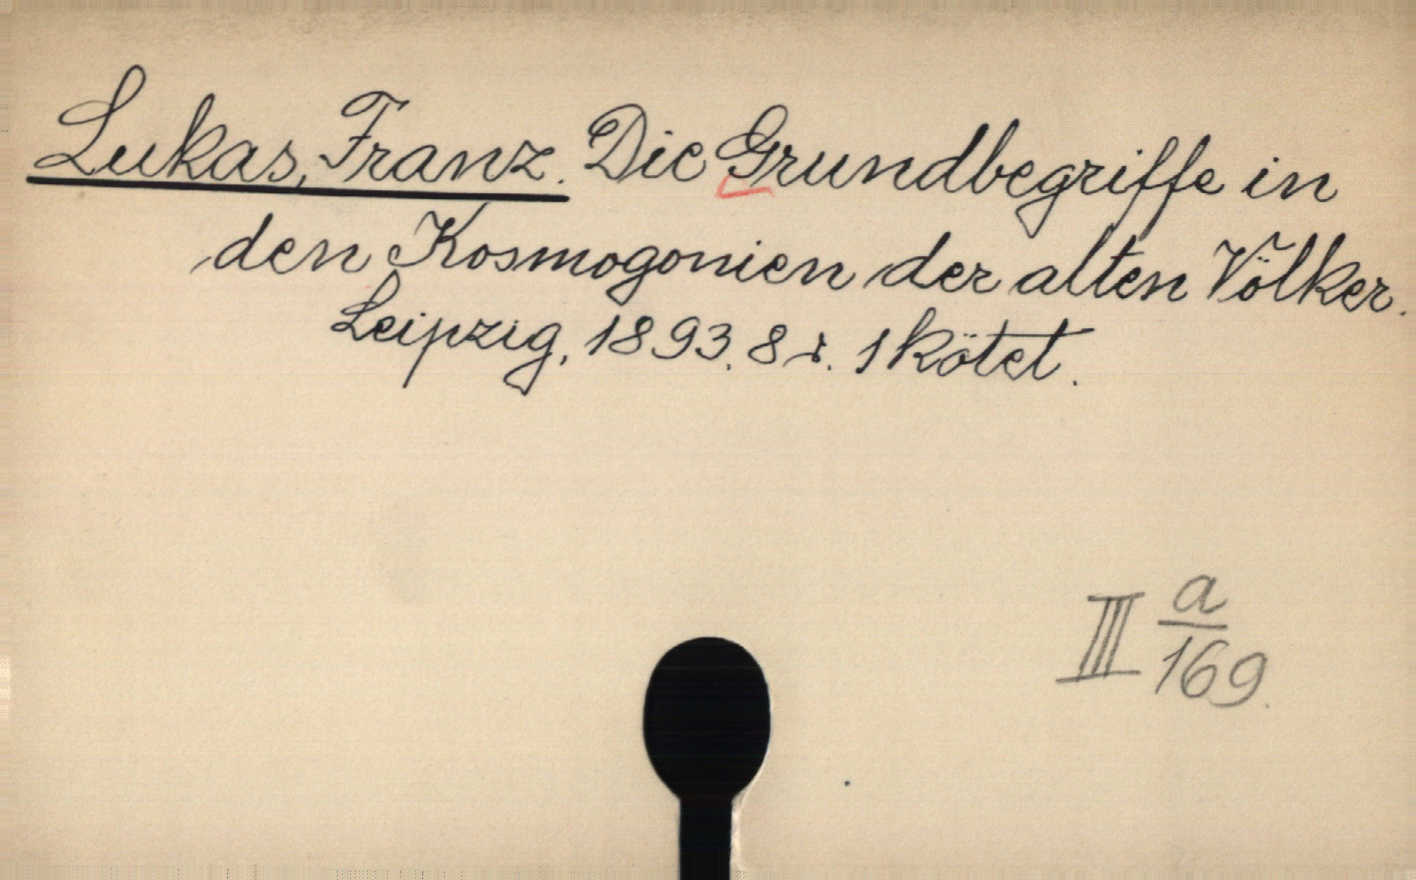 Lukas, Franz. Die Grundbegriffe in
den Kosmogonien der alten Völker.
Leipzig, 1893. 8 r. 1 kötet.
III a/169.